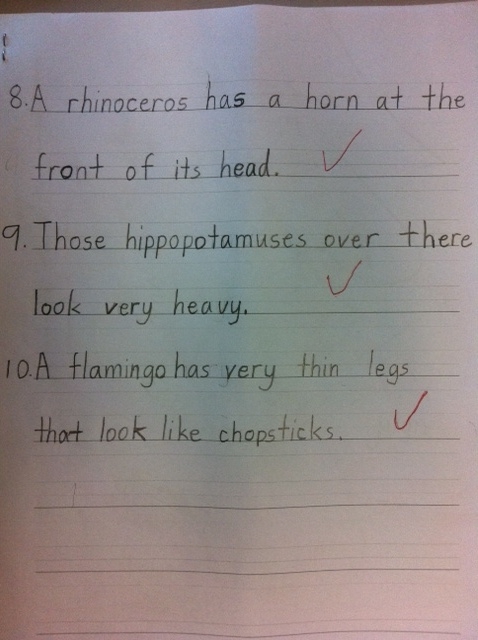 8. A rhinoceros has a horn at the
front of its head.
9. Those hippopotamuses over there
look very heavy.
10. A flamingo has very thin legs
that look like chopsticks.